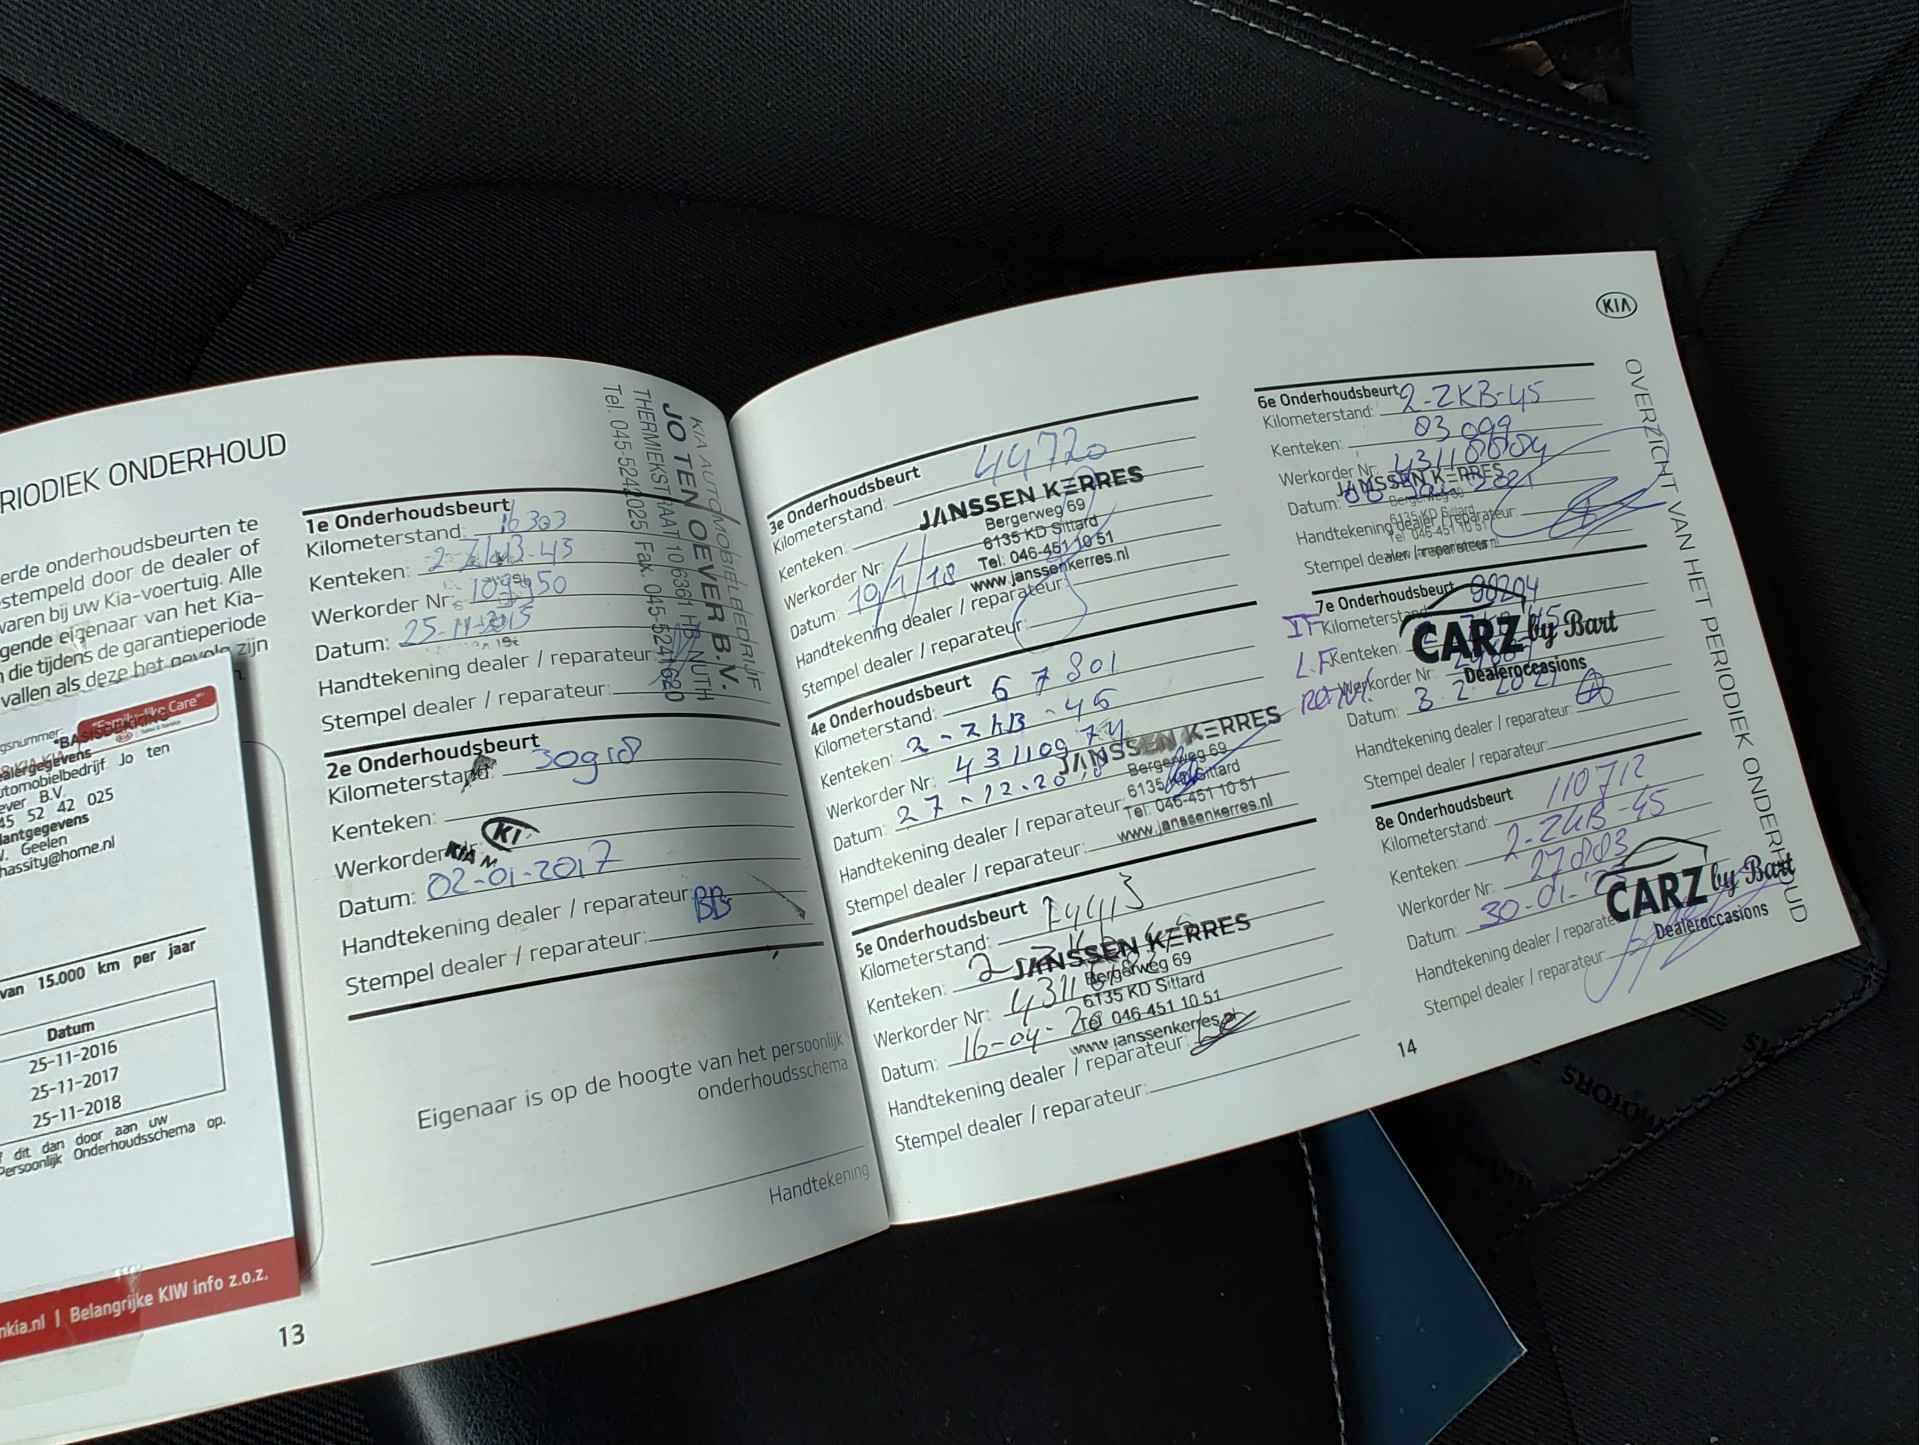 RIODIEK ONDERHOUD
erde onderhoudsbeurten te
stempeld door de dealer of
waren bij uw Kia-voertuig. Alle
gende eigenaar van het Kia-
die tijdens de garantieperiode
vallen als deze het gevolg zijn
"Family-like Care"
gsnummer: "BASISDEKKING
alergegevens
utomobielbedrijf Jo ten
ever B.V.
45 52 42 025
lantgegevens
Geelen
hassity@home.nl
van 15.000 km per jaar
Datum
25-11-2016
25-11-2017
25-11-2018
dit dan door aan uw
Persoonlijk Onderhoudsschema op.
nkia.nl | Belangrijke KIW info z.o.z.
13
1e Onderhoudsbeurt
Kilometerstand: 16303
Kenteken:
Werkorder Nr:
Datum: 25-11-2015
Handtekening dealer / reparateur:
Stempel dealer / reparateur:
KIA AUTOMOBIELBEDRIJF
JO TEN OEVER B.V.
THERMIEKSTRAAT 10 6361 HB NUTH
Tel. 045-5242025 Fax. 045-5241620
2e Onderhoudsbeurt
Kilometerstand:
Kenteken:
Werkorder
Datum: 02-01-2017
Handtekening dealer / reparateur: BB
Stempel dealer / reparateur:
Eigenaar is op de hoogte van het persoonlijk
onderhoudsschema
Handtekening
3e Onderhoudsbeurt
Kilometerstand: 44720
Kenteken:
Werkorder Nr:
Datum: 19/1/18
Handtekening dealer / reparateur:
Stempel dealer / reparateur:
JANSSEN KERRES
Bergerweg 69
6135 KD Sittard
Tel: 046-451 10 51
www.janssenkerres.nl
4e Onderhoudsbeurt
Kilometerstand: 67801
Kenteken: 2-ZKB-45
Werkorder Nr: 43110974
Datum: 27-12-20
Handtekening dealer / reparateur:
Stempel dealer / reparateur:
JANSSEN KERRES
Bergerweg 69
6135 KD Sittard
Tel: 046-451 10 51
www.janssenkerres.nl
5e Onderhoudsbeurt
Kilometerstand: 74413
Kenteken: 2
Werkorder Nr: 4311
Datum: 16-04-20
Handtekening dealer / reparateur:
Stempel dealer / reparateur:
JANSSEN KERRES
Bergerweg 69
6135 KD Sittard
Tel 046-451 10 51
www.janssenkerres.nl
KIA
6e Onderhoudsbeurt
Kilometerstand: 2-ZKB-45
Kenteken:
Werkorder Nr:
Datum:
Handtekening dealer / reparateur:
Stempel dealer / reparateur:
JANSSEN KERRES
Bergerweg 69
6135 KD Sittard
Tel 046-451 10 51
7e Onderhoudsbeurt
Kilometerstand: 90204
Kenteken:
Werkorder Nr:
Datum: 3.2.2021
Handtekening dealer / reparateur:
Stempel dealer / reparateur:
CARZ by Bart
Dealeroccasions
8e Onderhoudsbeurt
Kilometerstand: 110712
Kenteken: 2-ZKB-45
Werkorder Nr: 27003
Datum: 30-01-
Handtekening dealer / reparateur
Stempel dealer / reparateur:
CARZ by Bart
Dealeroccasions
OVERZICHT VAN HET PERIODIEK ONDERHOUD
14
MOTORS